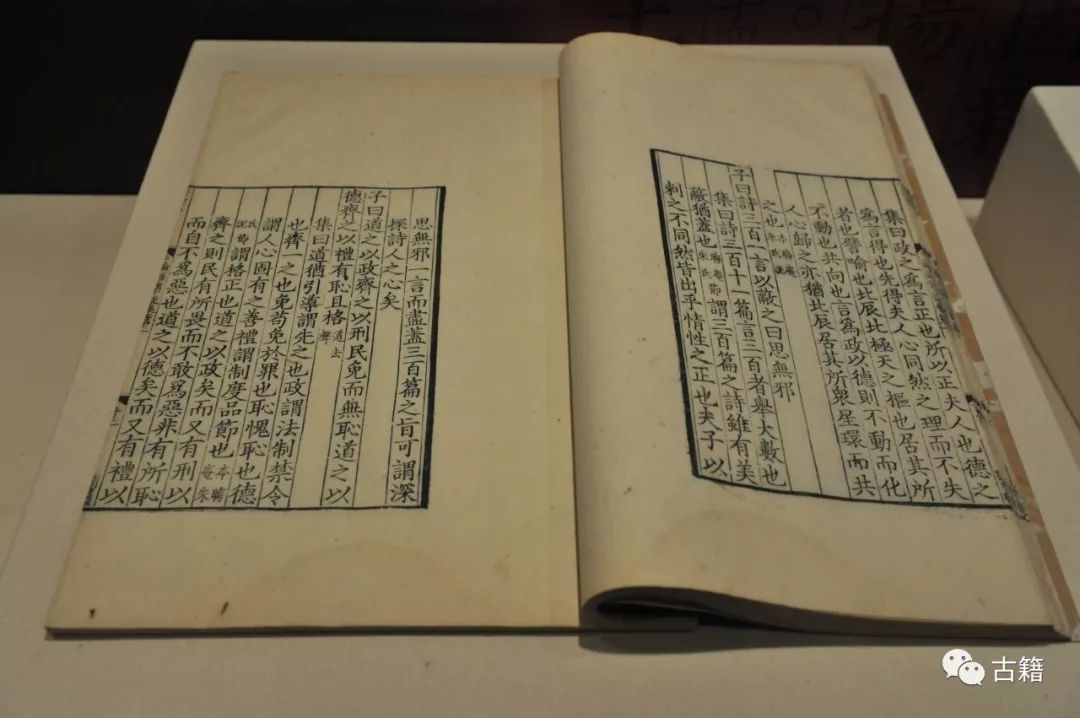 集曰政之為言正也所以正夫人也德之
為言得也先得夫人心同然之理而不失
者也譬喻也北辰北極天之樞也居其所
不動也共向也言為政以德則不動而化
人心歸之亦猶北辰居其所眾星環而共
之也本晦庵朱氏說
子曰詩三百一言以蔽之曰思無邪
集曰詩三百十一篇言三百者舉大數也
蔽猶蓋也晦庵朱氏節謂三百篇之詩雖有美
刺之不同然皆出乎情性之正也夫子以
思無邪一言而盡蓋三百篇之旨可謂深
探詩人之心矣
子曰道之以政齊之以刑民免而無恥道之以
德齊之以禮有恥且格道去聲
集曰道猶引導謂先之也政謂法制禁令
也齊一之也免苟免於罪也恥愧恥也德
謂人心固有之善禮謂制度品節也本晦庵朱
氏說節謂格正也道之以政矣而又有刑以
齊之則民有所畏而不敢為惡非有所恥
而自不為惡也道之以德矣而又有禮以
古籍